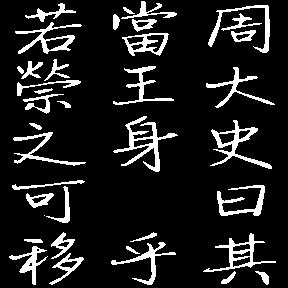 周大史曰其
當王身乎
若禜之可移